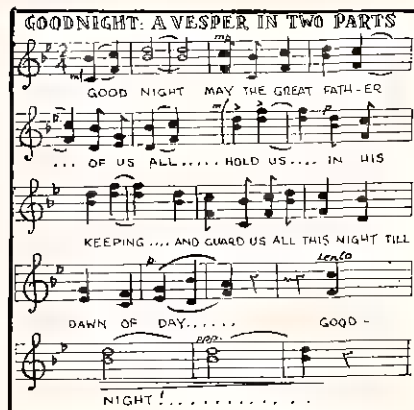 GOODNIGHT: A VESPER IN TWO PARTS
mp
mf
GOOD NIGHT MAY THE GREAT FATH-ER
p
mf
p
... OF US ALL..... HOLD US.... IN HIS
KEEPING .... AND GUARD US ALL THIS NIGHT TILL
p.
lento
DAWN OF DAY...... GOOD-
ppp.
NIGHT!............